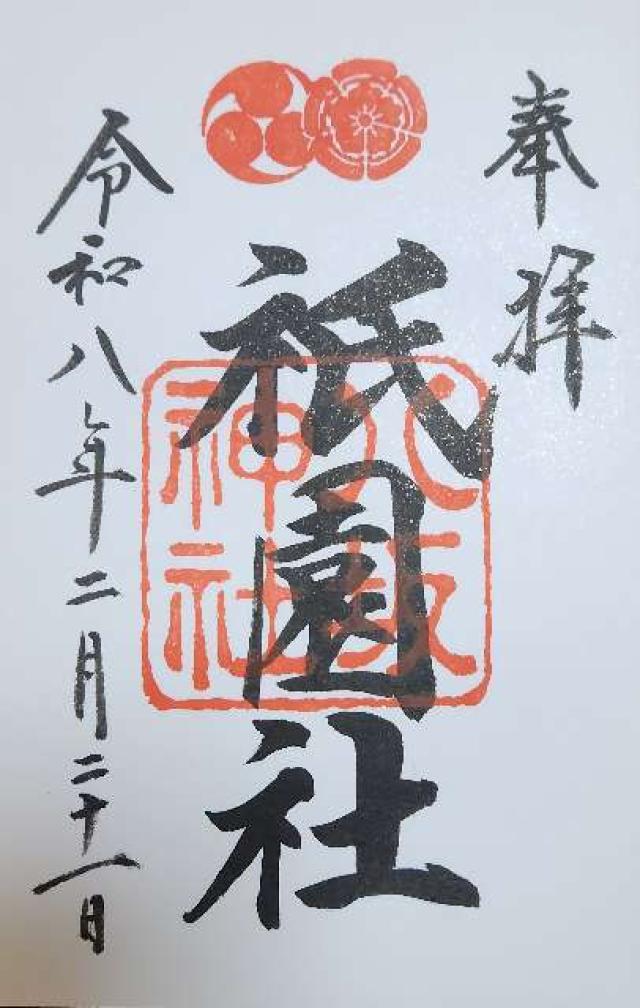 奉拝
祇園社
八坂神社
令和八年二月二十一日